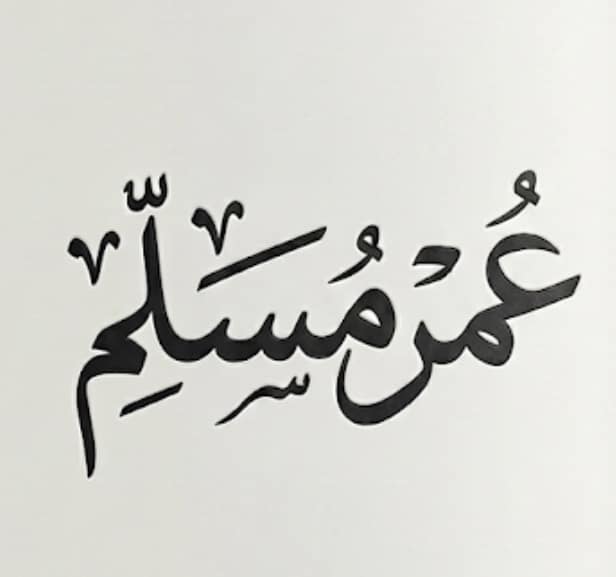 عُمْر مُسَلِّم